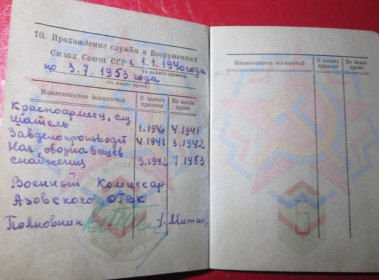 10. Прохождение службы в Вооруженных
Силах Союза ССР с 1.1.1940 года
(с какого времени
по 3.7.1953 года
по какое время)
Наименование должностей
С какого времени
По какое время
Красноармеец, слу
шатель 1.1940 4.1941
Завделопроизвод 4.1941 3.1942
Нач. обозновещев
снабжения 3.1942 7.1953
Военный Комиссар
Азовского ОГВК
Полковник
Наименование должностей
С какого времени
По какое время
5